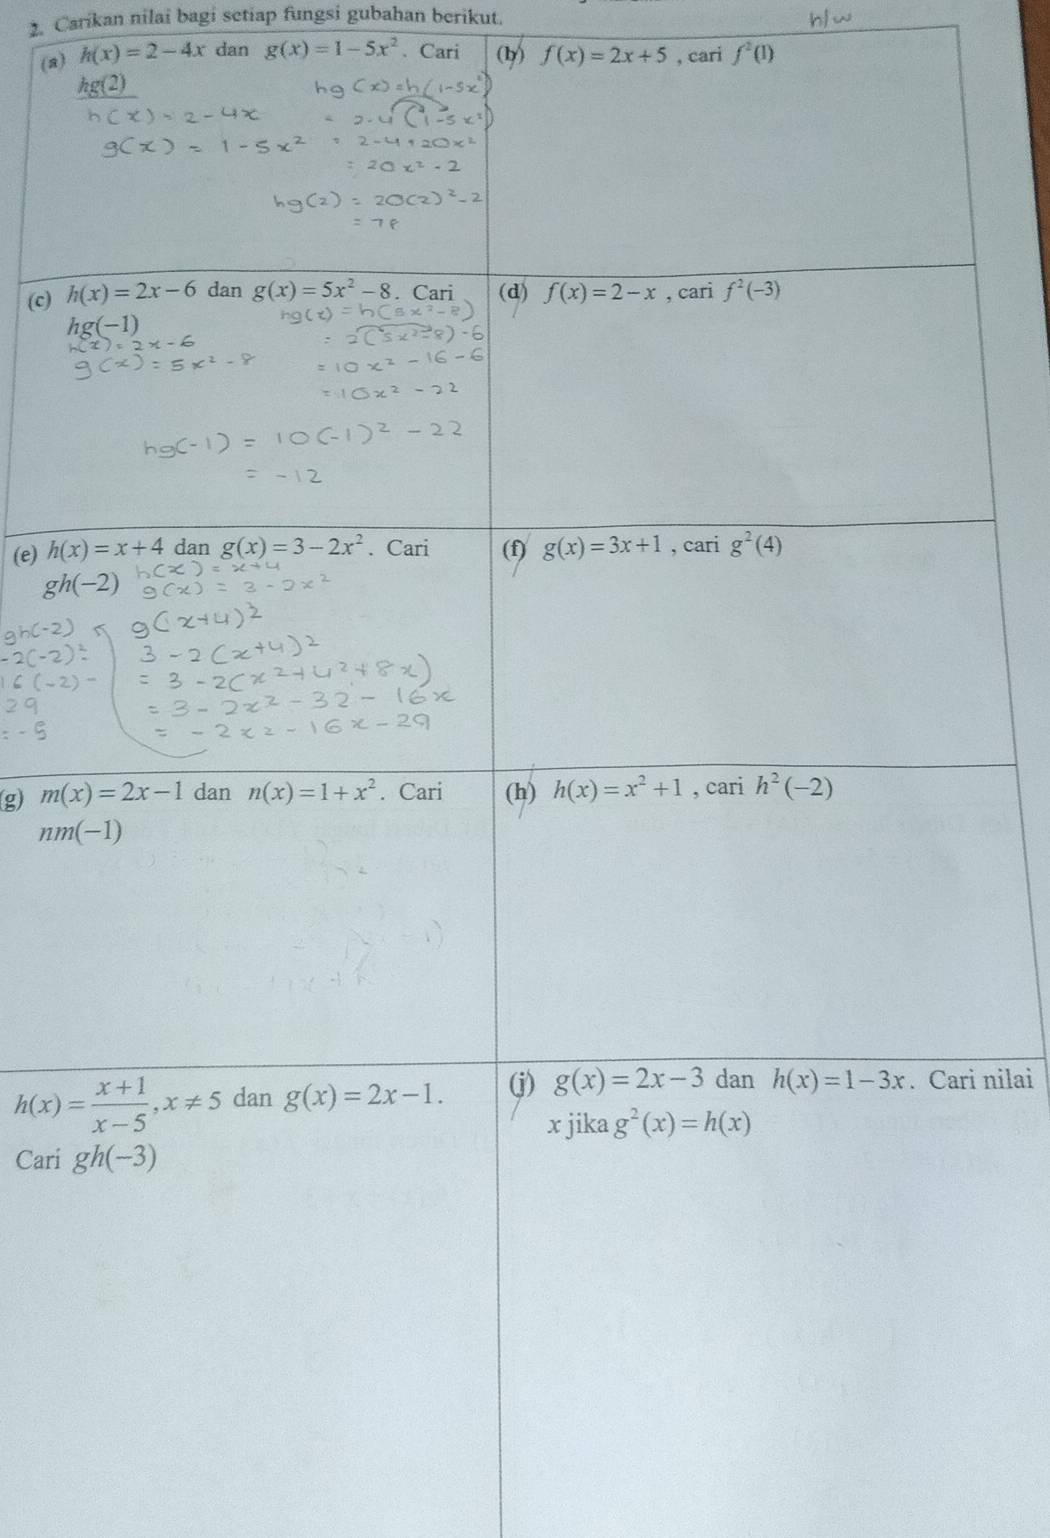 2. Carikan nilai bagi setiap fungsi gubahan berikut.
h/w
(a) h(x) = 2 − 4x dan g(x) = 1 − 5x². Cari
hg(2)
h(x) = 2 - 4x
g(x) = 1 - 5x²
hg(x) = h(1-5x²)
= 2-4(1-5x²)
= 2-4+20x²
= 20x² - 2
hg(2) = 20(2)² - 2
= 78
(b) f(x) = 2x + 5 , cari f²(1)
(c) h(x) = 2x − 6 dan g(x) = 5x² − 8. Cari
hg(−1)
h(x) = 2x - 6
g(x) = 5x² - 8
hg(x) = h(5x² - 8)
= 2(5x² - 8) - 6
= 10x² - 16 - 6
= 10x² - 22
hg(-1) = 10(-1)² - 22
= -12
(d) f(x) = 2 − x , cari f²(−3)
(e) h(x) = x + 4 dan g(x) = 3 − 2x². Cari
gh(−2)
h(x) = x+4
g(x) = 3 - 2x²
g(x+4)²
3 - 2(x+4)²
= 3 - 2(x² + 4² + 8x)
= 3 - 2x² - 32 - 16x
= -2x² - 16x - 29
gh(-2)
-2(-2)² -
16(-2) -
29
= -5
(f) g(x) = 3x + 1 , cari g²(4)
(g) m(x) = 2x − 1 dan n(x) = 1 + x². Cari
nm(−1)
(h) h(x) = x² + 1 , cari h²(−2)
h(x) = x + 1 / x − 5 , x ≠ 5 dan g(x) = 2x − 1.
Cari gh(−3)
(j) g(x) = 2x − 3 dan h(x) = 1 − 3x. Cari nilai
x jika g²(x) = h(x)